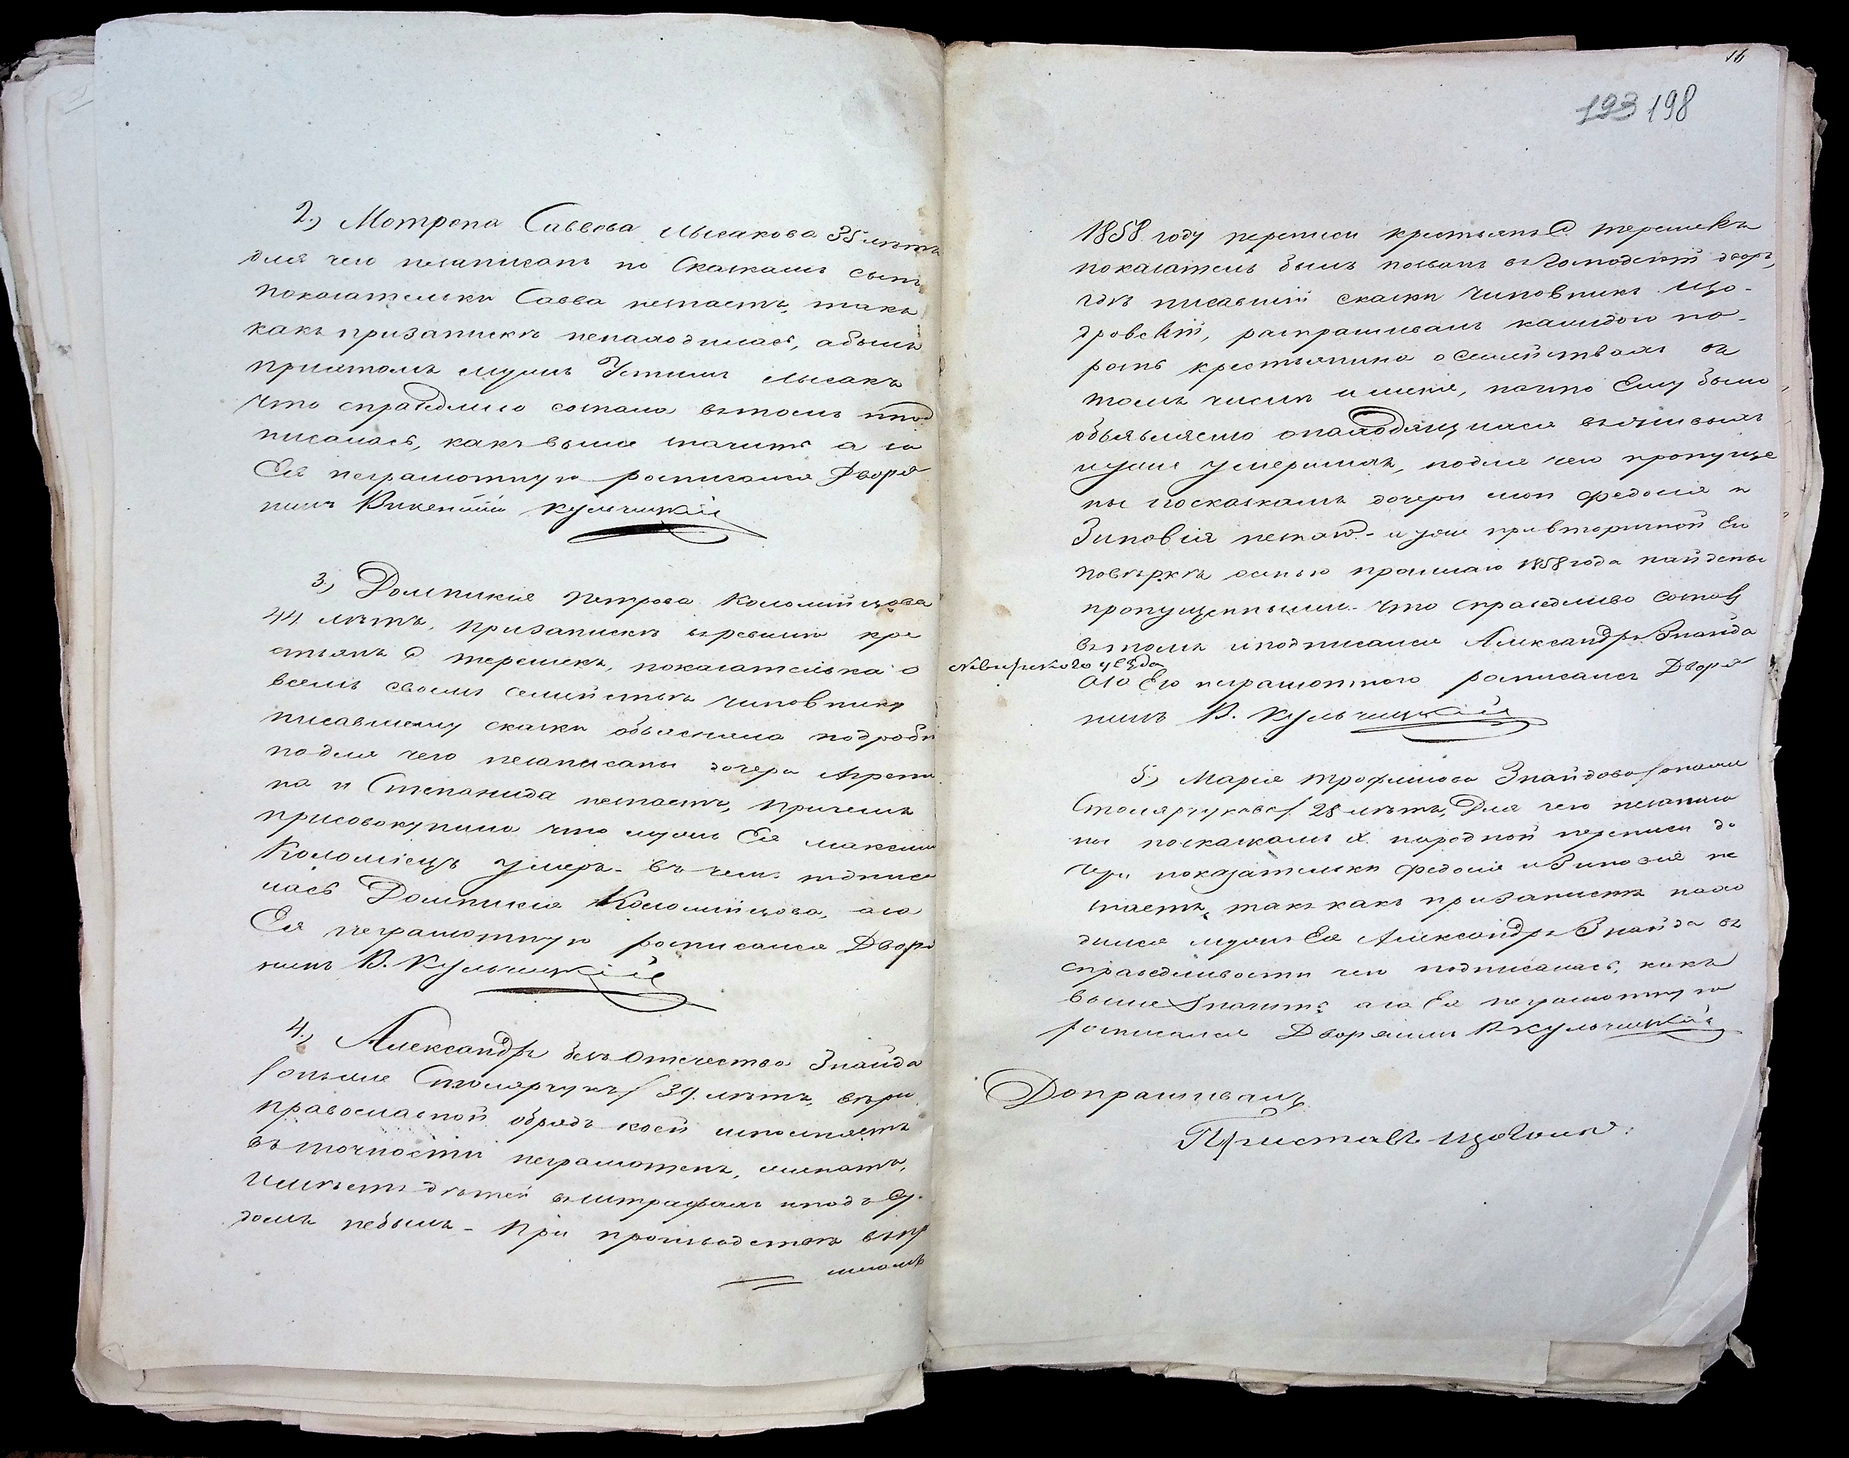 2., Мотрона Саввова Лысакова 35 лѣтъ
для чего незаписанъ по Сказкамъ сынъ
показательки Савва незнаетъ, такъ
какъ призапискѣ ненаходилась, абылъ
приэтомъ мужъ Устимъ Лысакъ
что справедливо сознала въ томъ ипод
писалась, какъ выше значитъ а за
Ея неграмотную росписался Дворя
нинъ Викентій Кульчицкій
3., Домникія Петрова Коломійцова
44 лѣтъ. призапискѣ въревизію кре
стьянъ с. терешекъ, показателька о
всемъ своемъ семействѣ чиновнику
писавшему сказки объясняла подробн
но для чего незаписаны дочери Агрепи
на и Степанида незнаетъ, причемъ
присовокупила что мужъ Ея Максимъ
Коломіецъ умеръ. въ чемъ подписа
лась Домникія Коломійцова, а за
Ея неграмотную росписался Дворя
нинъ В. Кульчицкій
4., Александръ безъ отечества Знайда
/онъже Столярчукъ/ 39 лѣтъ, вѣры
православной обрядъ коей исполняетъ
въ точности неграмотенъ, женатъ,
имѣетъ дѣтей въ штрафахъ иподъ Су
домъ небылъ - При производствѣ въ пр
шломъ
16
193 198
1858 году переписи крестьянъ с. терешекъ
показатель былъ позванъ въ Господскій дворъ,
гдѣ писавшій сказки чиновникъ Що-
дровскій, распрашивалъ каждого по-
рознь крестьянина о Семействахъ въ
томъ числѣ и меня, начто Ему было
объявляемо онаходящихся въживыхъ
иуже умершихъ, подля чего пропуще
ны посказкамъ дочери мои Федосія и
Зиновія незнаю - а уже при вторичной Ея
повѣркѣ осенью прошлаго 1858 года найдены
пропущенными. что справедливо созналъ
въ томъ иподписался Александръ Знайда
уѣзда
аза Его неграмотного росписался Дворя
нинъ В. Кульчицкій
5., Марія трофимова Знайдова /онаже
Столярчукова/ 28 лѣтъ, Для чего незаписа
ны посказкамъ X. народной переписи до
чери показательки Федосія и Зиновія не
знаетъ, такъ какъ призапискѣ нахо
дился мужъ Ея Александръ Знайда въ
справедливости чего подписалась, какъ
выше значитъ аза Ея неграмотную
росписался Дворянинъ В Кульчицкій
Допрашивалъ
Приставъ